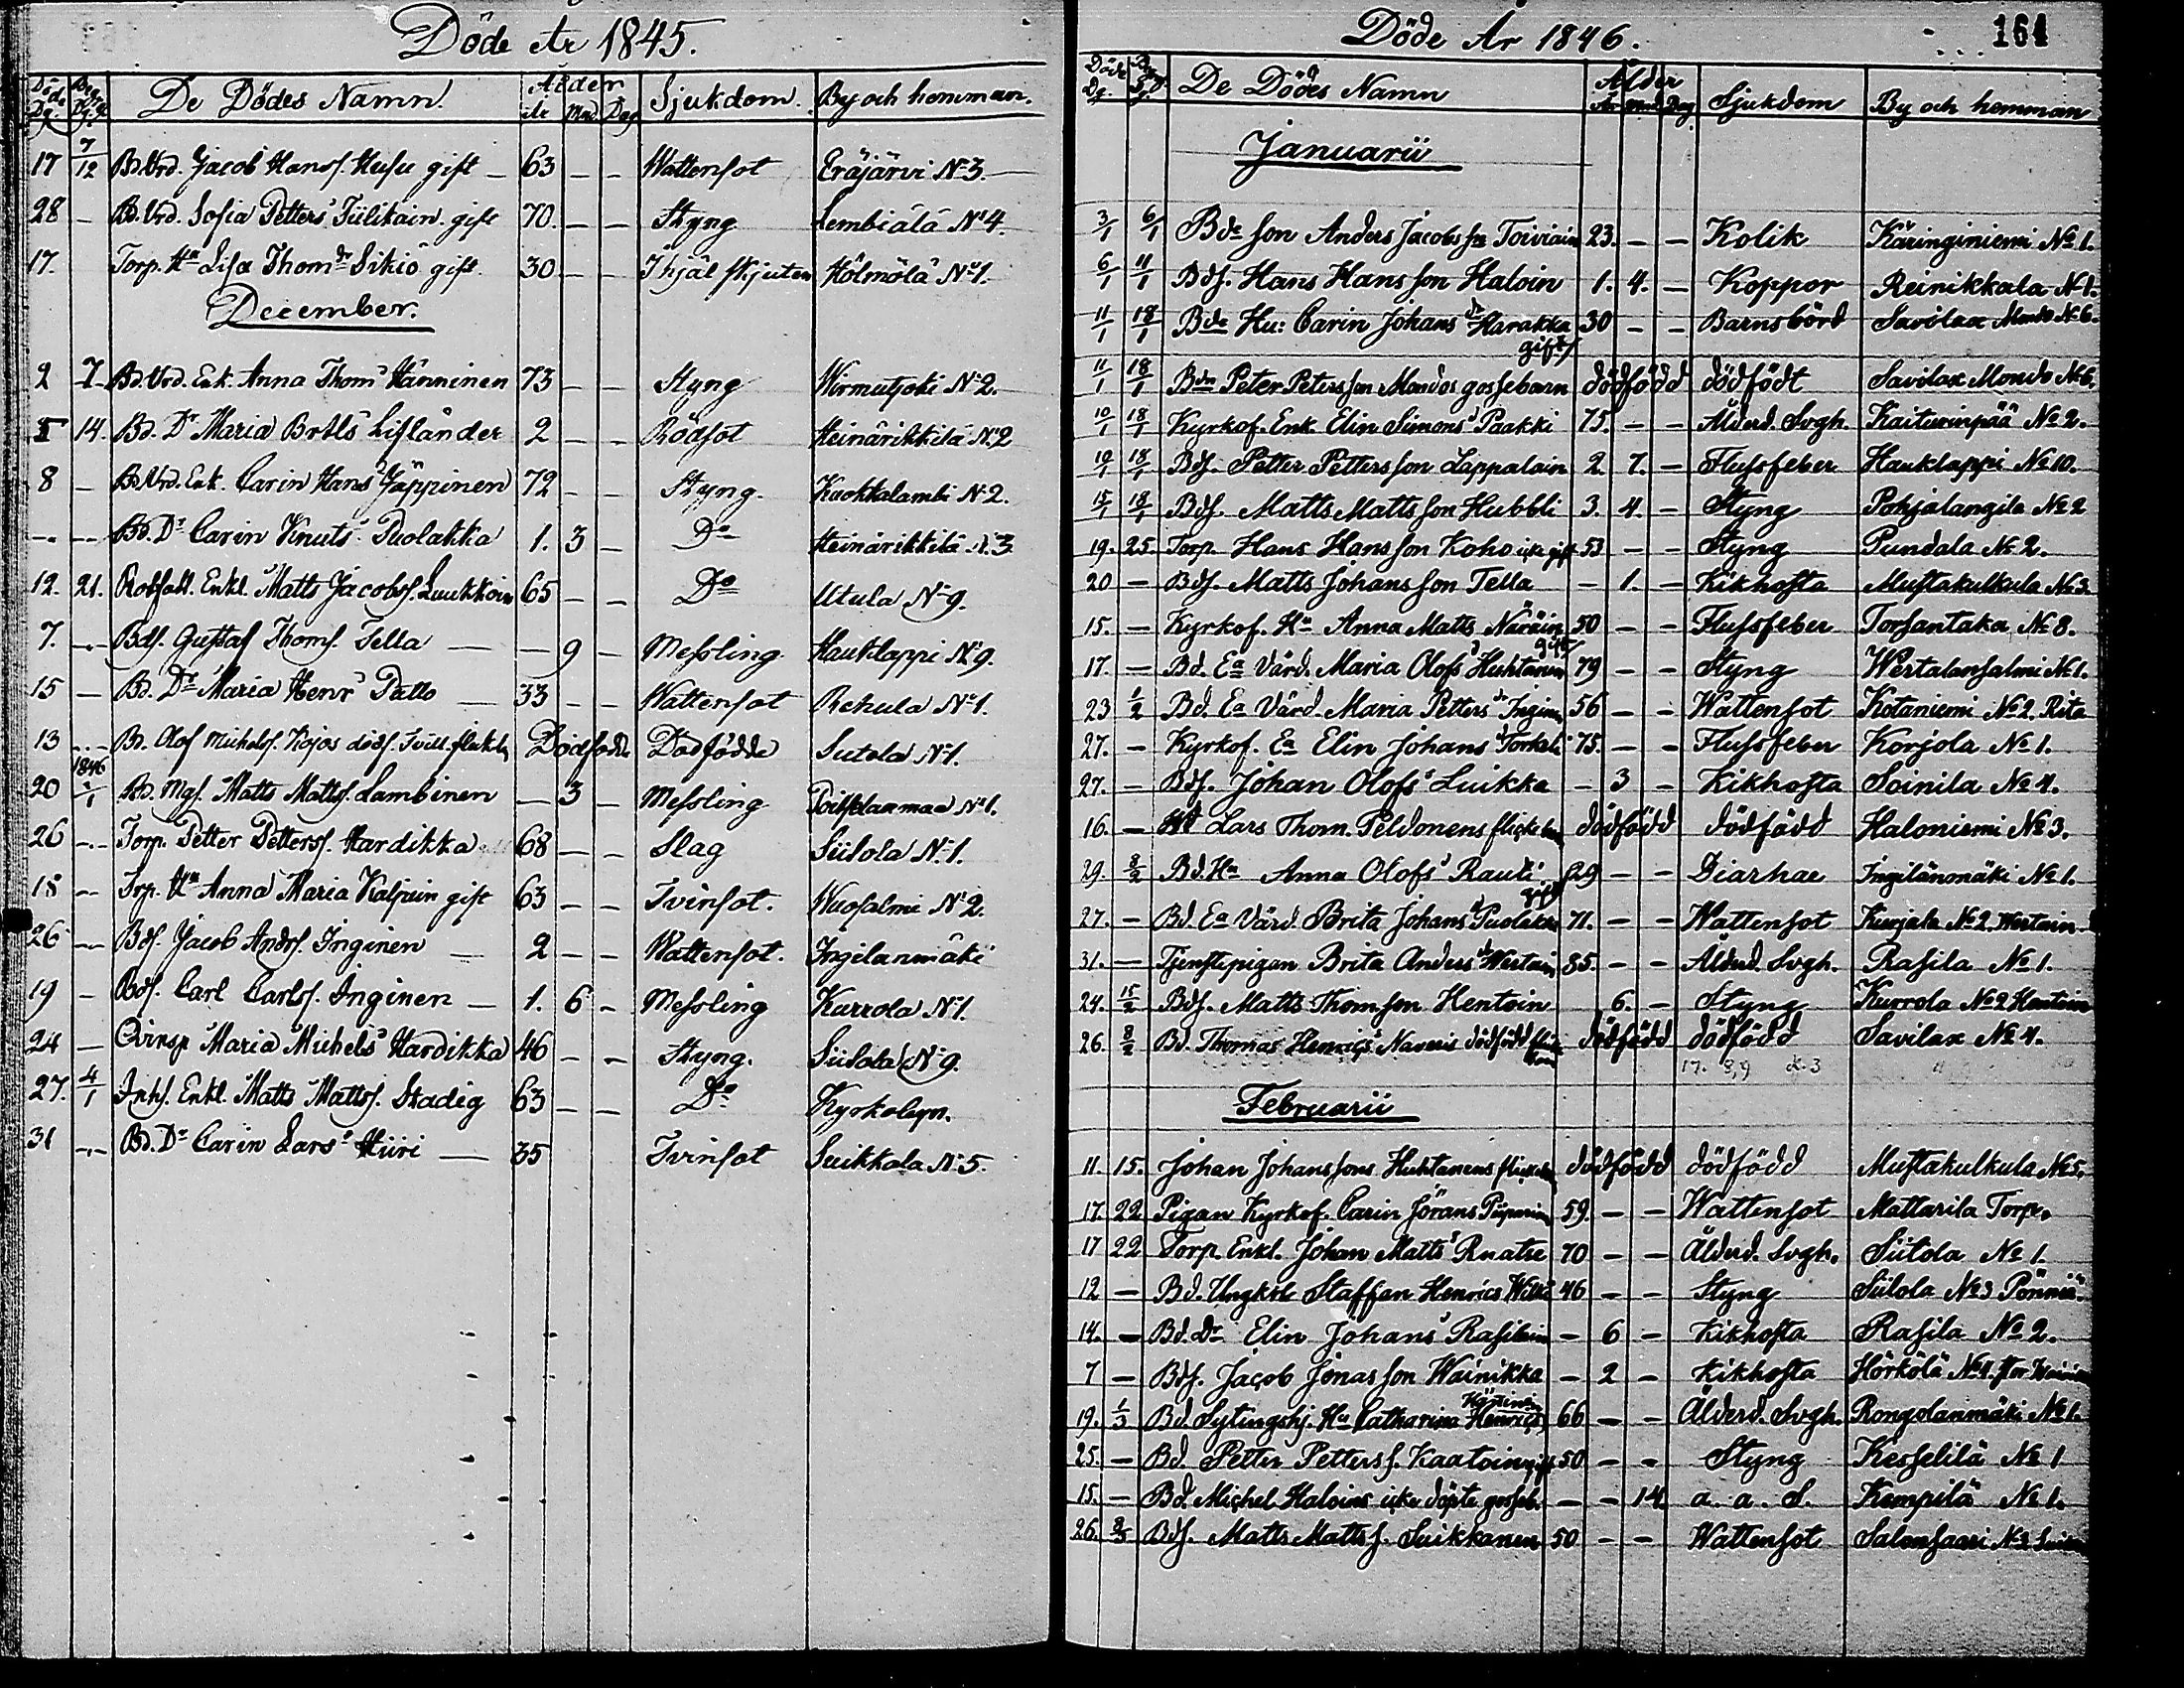 Döde År 1845.
Döde Dg. Begr. Dg. De Dödes Namn. Ålder År Mnd. Dag Sjukdom. By och hemman.
17 7/12 Bd.Vrd. Jacob Hanss. Husu gift — 63 — — Wattensot Eräjärvi No 3.
28 — Bd.Vrd. Sofia Petters Tiilikain. gift 70. — — Styng Lembiälä No 4.
17. Torp. Hu Lisa Thom dr Sikiö gift. 30 — — Ihjäl skjuten Hölmölä No 1.
December.
2 7. Bd.Vrd. Enk. Anna Thoms Hänninen 73 — — Styng Wirmutjoki No 2.
5 14. Bd. Dr Maria Brtls Lifländer 2 — — Rödsot Heinärikkilä No 2
8 — Bd.Vrd. Enk. Carin Hans Jäppinen 72 — — Styng. Kuokkalambi No 2.
— — Bd. Dr Carin Knuts Puolakka 1. 3 — Do Heinärikkilä No 3
12. 21. Enkl. Matts Jacobss. Luukkoin 65 — — Do Utula No 9.
7. — Bdss. Gustaf Thoms. Tella — — 9 — Messling Hauklappi No 9.
15 — Bd. Dr Maria Henr Patto — 33 — — Wattensot Rehula No 1.
13 — Bd. Olof Michelss. Kojos Dödfödde Dödfödde Sutola No 1.
20 1846 /1 Bd. Mgs. Matts Mattss. Lambinen — 3 — Messling No 1.
26 — Torp. Petter Petterss. Hardikka 68 — — Slag Siitola No 1.
18 — Trp. Hu Anna Maria Kaljuin gift 63 — — Tvinsot. Wuosalmi No 2.
26 — Bds. Jacob Andrs. Inginen — 2 — — Wattensot. Ingilanmäki
19 — Bds. Carl Carlss. Inginen — 1. 6 — Messling Kurrola No 1.
24 — Qvinsp Maria Michels Hardikka 46 — — Styng. Siitola No 9.
27. 4/1 Inhs. Enkl. Matts Mattss. Stadig 63 — — Do Kyrkobyn.
31 — Bd. Dr Carin Lars Hiiri — 35 Tvinsot Suikkala No 5.
164
Döde År 1846.
Döde Dg. Begr. Dg. De Dödes Namn Ålder År Mnd Dag Sjukdom By och hemman
Januarii
3/1 6/1 Bde son Anders Jacobs sn Toiviain 23. — — Kolik Käringiniemi No 1.
6/1 11/1 Bds. Hans Hansson Haloin 1. 4. — Koppor Reinikkala No 1.
11/1 18/1 Bde Hu: Carin Johans dr Harakka gift 30 — — Barnsbörd Savilax Mondo No 6.
11/1 18/1 Bdn Peter Petersson Mondos gossebarn dödfödd dödfödt Savilax Mondo No 6.
10/1 18/1 Kyrkof. Enk. Elin Simons Paakki 75. — — Ålderd. Svgh. Kaiturinpää No 2.
10/1 18/1 Bds. Petter Pettersson Lappalain 2. 7. — Flussfeber Hauklappi No 10.
15/1 18/1 Bds. Matts Mattsson Hubbli 3. 4. — Styng Pohjalangila No 2
19. 25. Torp. Hans Hansson Koho icke gift 53 — — Styng Pundala No 2.
20 — Bds. Matts Johansson Tella — 1. — Kikhosta Mustakulkula No 3.
15. — Kyrkof. Hu Anna Matts Näräin gift 50 — — Flussfeber Torsantaka No 8.
17. — Bd. Ea Värd. Maria Olofs Huhtanen 79 — — Styng Wertalansalmi No 1.
23 1/2 Bd. Ea Värd. Maria Petters dr Ingin 56 — — Wattensot Kotaniemi No 2. Rita
27. — Kyrkof. Ea Elin Johans dr Torkeli 75. — — Flussfeber Korjola No 1.
27. — Bds. Johan Olofs Luikka — 3 — Kikhosta Soinila No 4.
16. — Lars Thom. Peldonens flickebarn dödfödd dödfödd Haloniemi No 3.
29. 8/2 Bd. Hu Anna Olofs Rauti gift 29 — — Diarhae Ingilänmäki No 1.
27. — Bd. Ea Värd. Brita Johans Puolakka 71. — — Wattensot Kurjala No 2. Wertain
31. — Tjenstepigan Brita Anders dr Wertain 85. — — Ålderd. Svgh. Rasila No 1.
24. 15/2 Bds. Matts Thomson Hentoin 6. — Styng Kurrola No 2 Hentoin
26. 8/2 Bd. Thomas Henrics Naveris dödfödd dödfödd dödfödd Savilax No 4.
Februarii
11. 15. Johan Johanssons Huhtanens flickebn dödfödd dödfödd Mustakulkula No 5.
17. 22 Pigan Kyrkof. Carin Jörans Piiparin 59. — — Wattensot Mattarila Torp.
17 22 Torp. Enkl. Johan Matts Ruatse 70 — — Ålderd. Svgh. Siitola No 1.
12 — Bd. Ungkrl Staffan Henrics Wilki 46 — — Styng Siitola No 3 Pönniä
14. — Bd. Dr Elin Johans Rasilain — 6 — Kikhosta Rasila No 2.
7 — Bds. Jacob Jonasson Wainikka — 2 — Kikhosta Hörkölä No 4.
19. 1/3 Bd. Sytingshj. Hu Catharina Henrics Häyrinen 66 — — Ålderd. Svgh. Rongolanmäki No 1.
25. — Bd. Petter Petterss. Kaatoin gift 50 — — Styng Kesselilä No 1
15. — Bd. Michel Haloins icke döpte gosseb. — — 14 a. a. S. Kempilä No 1.
26. 8/3 Bds. Matts Mattss. Suikkanen 50 — — Wattensot Salonsaari No 3